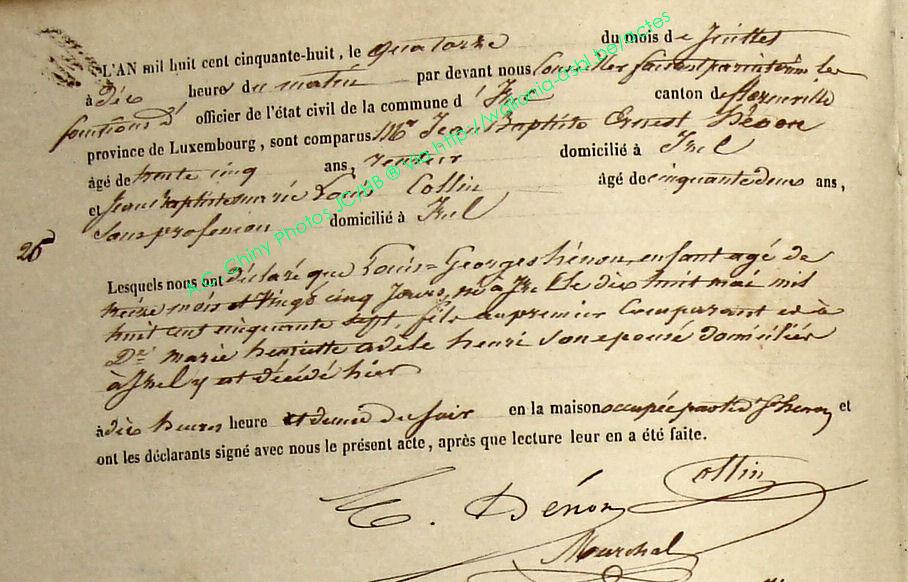 L'AN mil huit cent cinquante-huit, le quatorze du mois de Juillet
à dix heure du matin par devant nous Conseiller faisant par intérim les
fonctions d' officier de l'état civil de la commune d' Izel canton de florenville
province de Luxembourg, sont comparus Mr Jean Baptiste Ernest Dénon
âgé de trente cinq ans, rentier domicilié à Izel
et Jean Baptiste marie Louis Collin âgé de cinquante deux ans,
Sans profession domicilié à Izel
26
Lesquels nous ont déclaré que Louis-Georges Dénon, enfant agé de
treize mois et vingt cinq jours, né à Izel le dix huit mai mil
huit cent cinquante sept, fils au premier Comparant et à
De marie henriette adèle henri son épouse domiciliés
à Izel y est décédé hier
à dix heures heure et demie du soir en la maison occupée par led. et
ont les déclarants signé avec nous le présent acte, après que lecture leur en a été faite.
Collin
Dénon
Marchal
A.G. Chiny Photos JC/HB ® Wa http://wallonia-asbl.be/actes